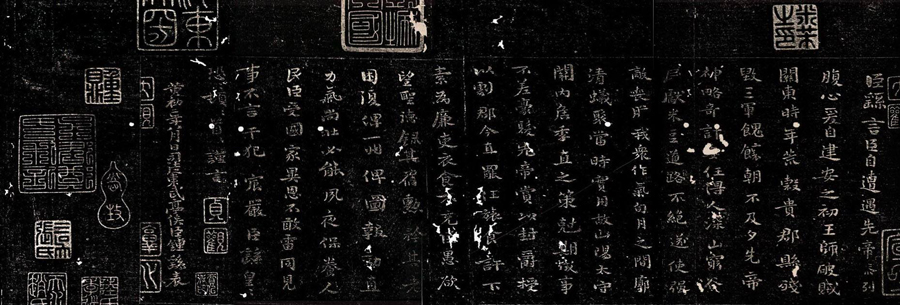 臣繇言臣自遭遇先帝忝列
腹心爰自建安之初王師破賊
關東時年荒穀貴郡縣殘
毀三軍餽饟朝不及夕先帝
神略奇計任得人深山窮谷
民獻米豆道路不絕遂使強
敵喪膽我眾作氣旬月之間廓
清蟻聚當時實用故山陽太守
關內侯季直之策剋期成事
不差豪髮先帝賞以封爵授
以劇郡今直罷任旅食許下
素為廉吏衣食不充臣愚欲
望聖德錄其舊勳矜其老
困復俾一州俾圖報效直
力氣尚壯必能夙夜保養人
民臣受國家異恩不敢雷同見
事不言干犯宸嚴臣繇皇
恐頓首謹言
黃初二年八月日司徒東武亭侯臣鍾繇表